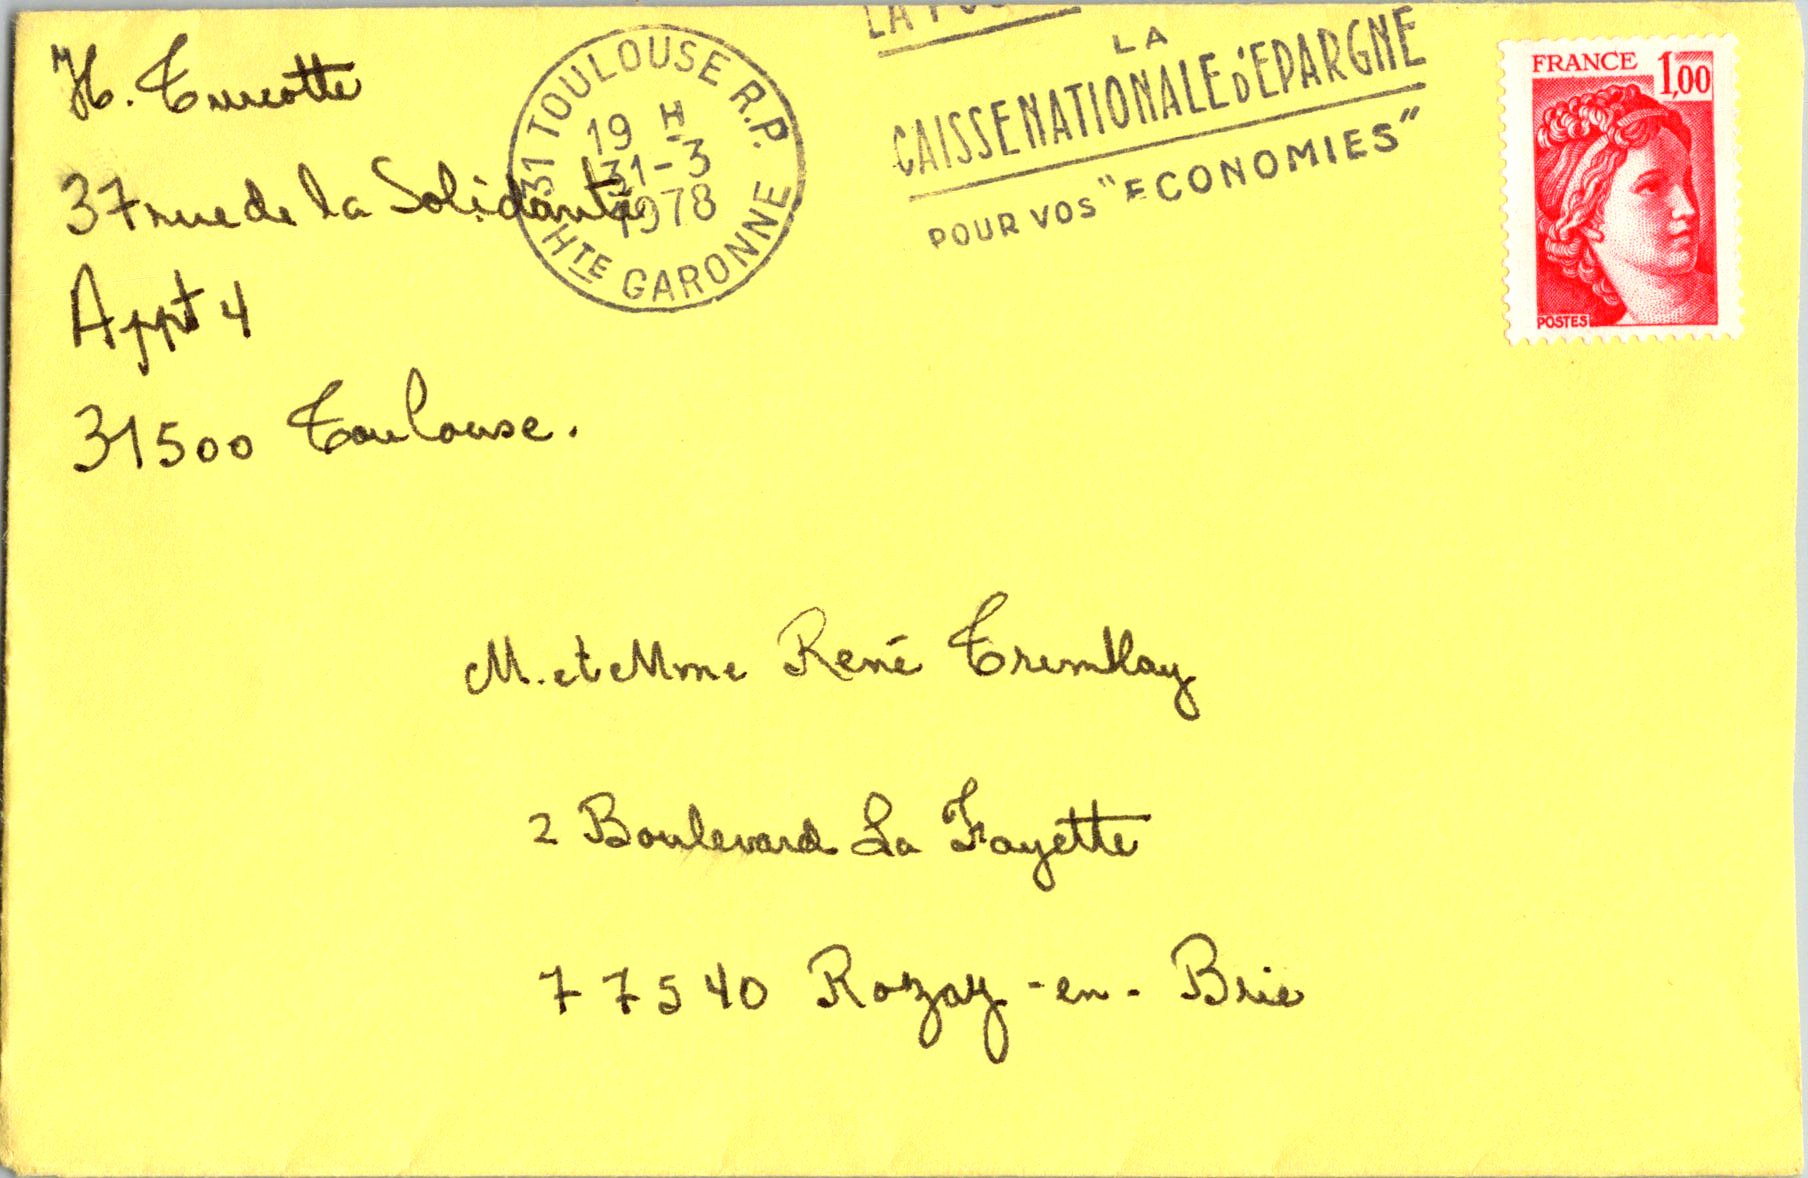 H. Turcotte
37 rue de la Solidarité
Appt 4
31500 Toulouse.
31 TOULOUSE R.P.
19 H
31-3
1978
HTE GARONNE
LA
CAISSE NATIONALE d'EPARGNE
POUR VOS "ECONOMIES"
FRANCE 1,00
POSTES
M. et Mme René Tremblay
2 Boulevard La Fayette
77540 Rozay-en-Brie